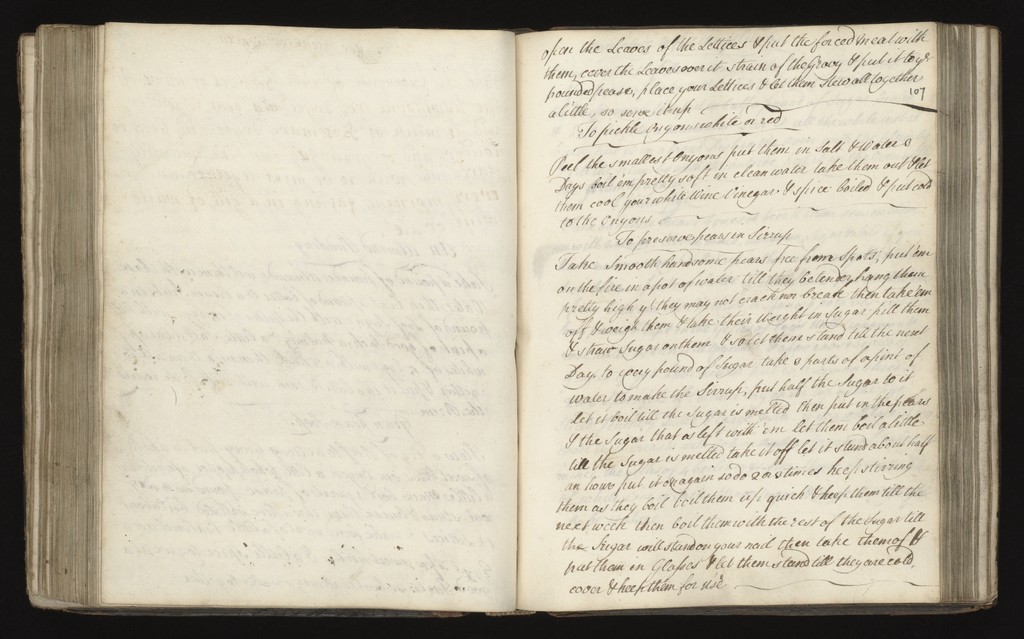 open the Leaves of the Lettices & put the forced meat with
them, cover the Leaves over it strain of the Gravy & put it to ye
pounded pease, place your Lettices & let them stew all together
107
a little, so serve it up
To pickle Onyons white or red
Peel the smallest Onyons put them in Salt & Water 3
Days boil 'em pretty soft in clean water take them out & let
them cool your white Wine Vinegar & spice boiled & put cold
to the Onyons
To preserve pears in Sirrup
Take Smooth handsome pears free from Spots, put 'em
on the fire in a pot of water till they be tender, hang them
pretty high yt they may not crack nor break then take 'em
off & weigh them & take their Weight in Sugar pill them
& straw Sugar on them & so let them stand till the next
Day. to every pound of Sugar take 3 parts of a pint of
water to make the Sirrup, put half the Sugar to it
let it boil till the Sugar is melted then put in the pears
& the Sugar that is left with 'em let them boil a little
till the Sugar is melted take it off let it stand about half
an hour put it on again so do 2 or 3 times keep stirring
them as they boil boil them up quick & keep them till the
next week then boil them with the rest of the Sugar till
the Sugar will stand on your nail then take them off &
put them in Glasses & let them stand till they are cold,
cover & keep them for use